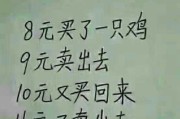 8元买了一只鸡
9元卖出去
10元又买回来